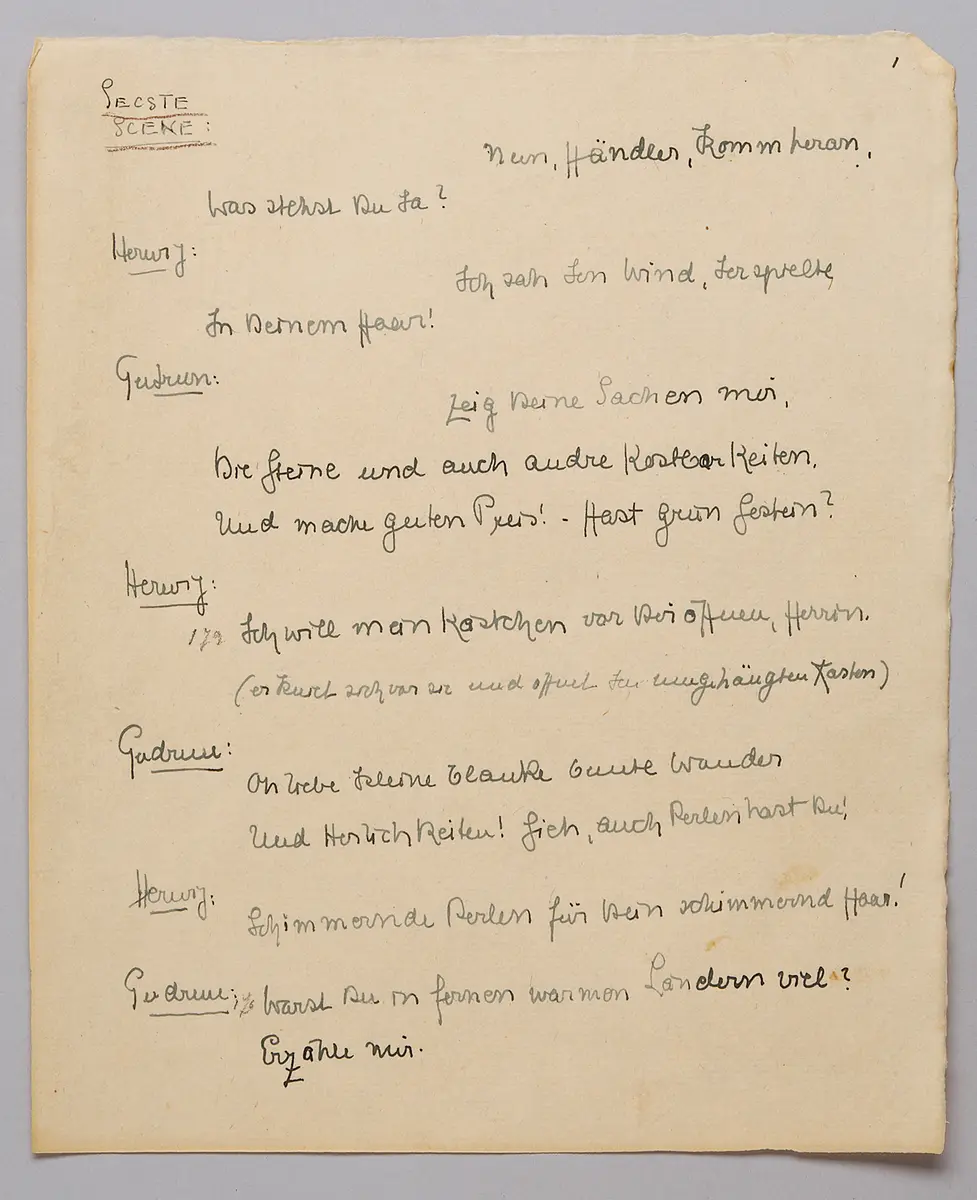 1
SECSTE
SCENE:
Nun, Händler, komm heran,
Was stehst Du da?
Herwig:
Ich sah den Wind, der spielte
In Deinem Haar!
Gudrun:
Zeig Deine Sachen mir,
Die Steine und auch andre Kostbarkeiten.
Und mache guten Preis! - Hast grün Gestein?
Herwig:
Ich will mein Kästchen vor Dir öffnen, Herrin.
(er kniet sich vor sie und öffnet den umgehängten Kasten)
Gudrun:
Oh liebe kleine blanke bunte Wunder
Und Herlichkeiten! Sieh, auch Perlen hast Du!
Herwig:
Schimmernde Perlen für Dein schimmernd Haar!
Gudrun: Warst Du in fernen warmen Ländern viel?
Erzähle mir.